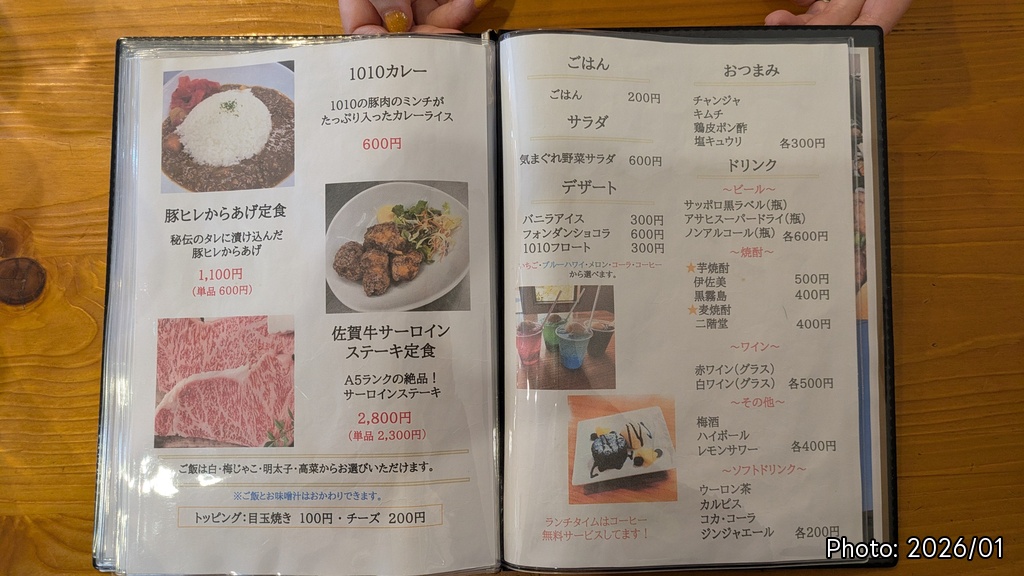 1010カレー
1010の豚肉のミンチが
たっぷり入ったカレーライス
600円
豚ヒレからあげ定食
秘伝のタレに漬け込んだ
豚ヒレからあげ
1,100円
(単品 600円)
佐賀牛サーロイン
ステーキ定食
A5ランクの絶品!
サーロインステーキ
2,800円
(単品 2,300円)
ご飯は白・梅じゃこ・明太子・高菜からお選びいただけます。
※ご飯とお味噌汁はおかわりできます。
トッピング:目玉焼き 100円・チーズ 200円
ごはん
ごはん 200円
サラダ
気まぐれ野菜サラダ 600円
デザート
バニラアイス 300円
フォンダンショコラ 600円
1010フロート 300円
いちご・ブルーハワイ・メロン・コーラ・コーヒー
から選べます。
ランチタイムはコーヒー
無料サービスしてます!
おつまみ
チャンジャ
キムチ
鶏皮ポン酢
塩キュウリ 各300円
ドリンク
~ビール~
サッポロ黒ラベル(瓶)
アサヒスーパードライ(瓶)
ノンアルコール(瓶) 各600円
~焼酎~
★芋焼酎
伊佐美 500円
黒霧島 400円
★麦焼酎
二階堂 400円
~ワイン~
赤ワイン(グラス)
白ワイン(グラス) 各500円
~その他~
梅酒
ハイボール
レモンサワー 各400円
~ソフトドリンク~
ウーロン茶
カルピス
コカ・コーラ
ジンジャエール 各200円
Photo: 2026/01